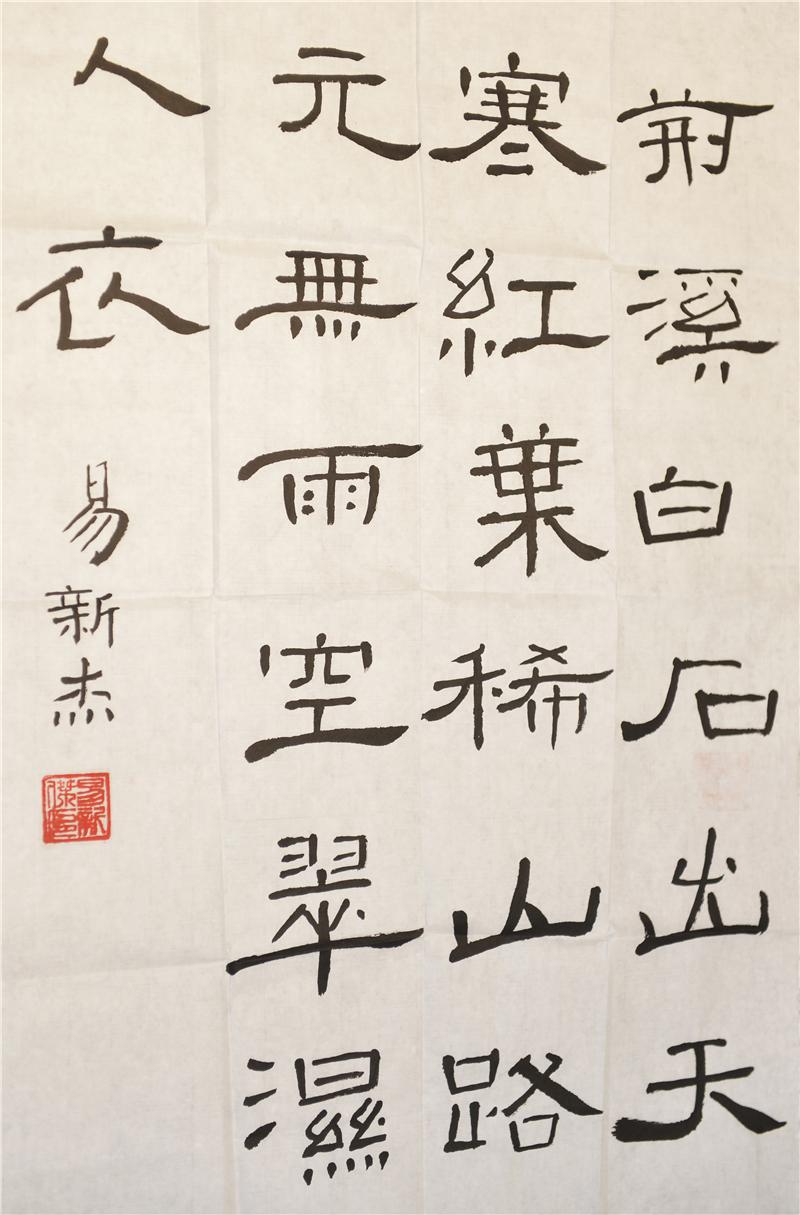 荊溪白石出天
寒紅葉稀山路
元無雨空翠濕
人衣
易新杰
易新傑印